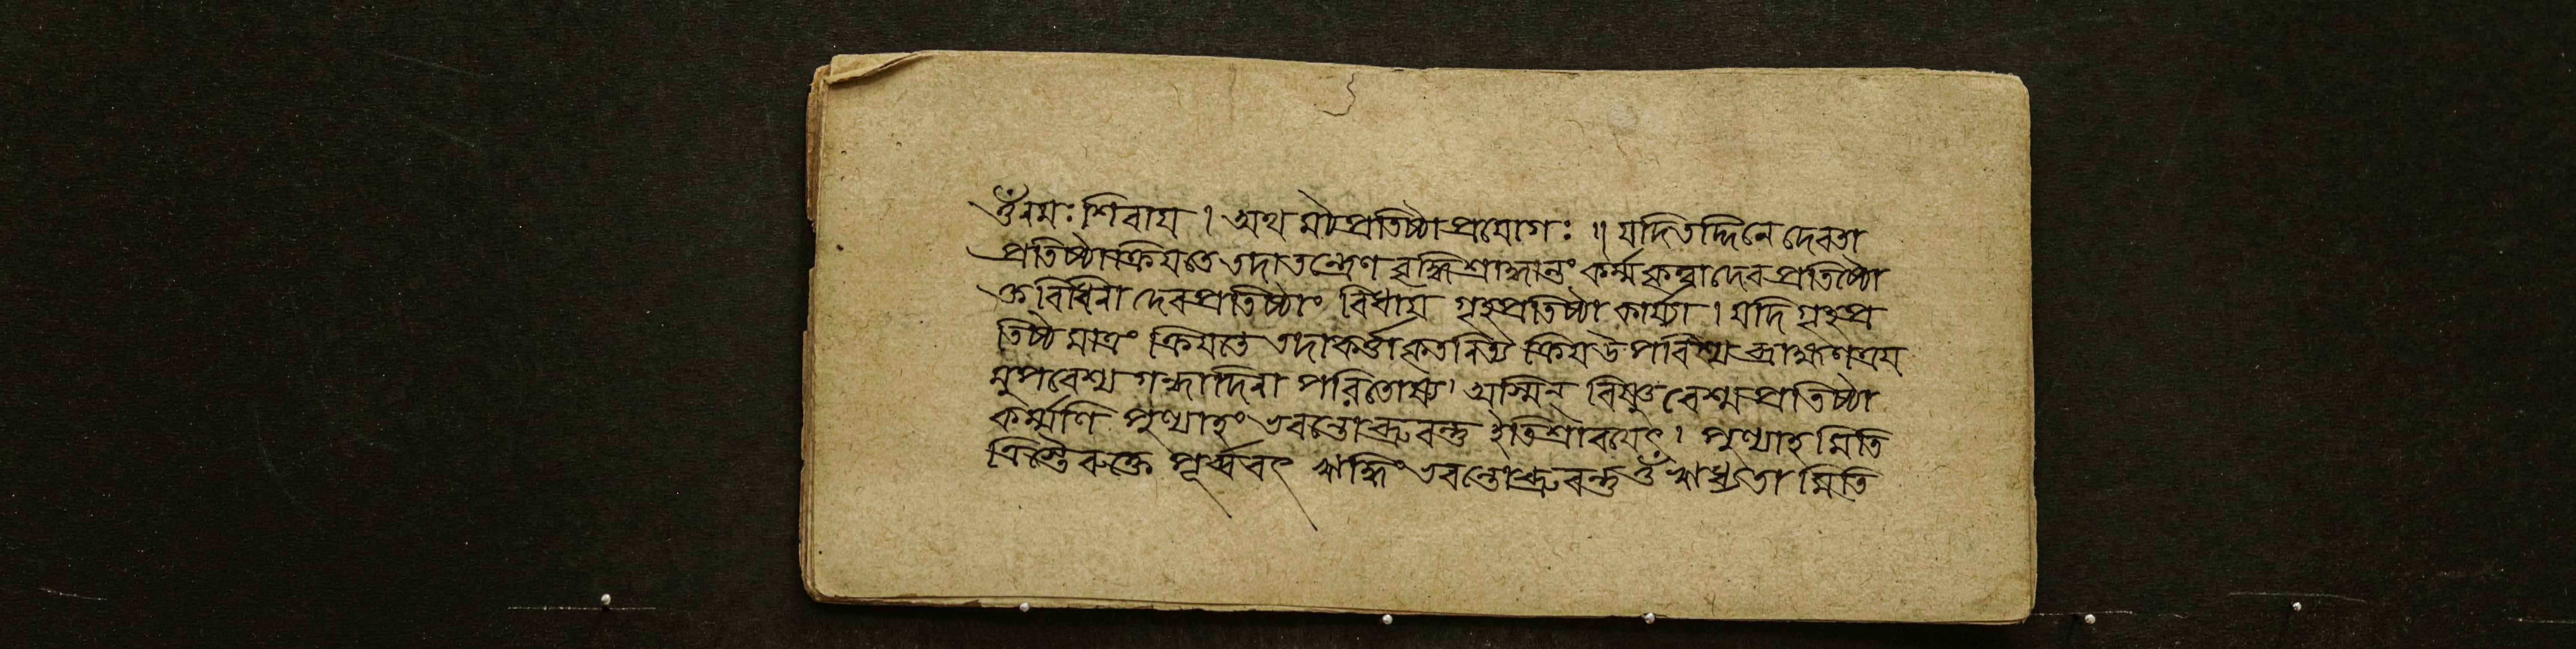 ওঁ নমঃ শিবায় । অথ মঠপ্রতিষ্ঠাপ্রয়োগঃ ॥ যদি তদ্দিনে দেবতা
প্রতিষ্ঠা ক্রিয়তে তদা তন্ত্রেণ বৃদ্ধিশ্রাদ্ধান্তং কর্ম্ম কৃত্বা দেবপ্রতিষ্ঠো
ক্তবিধিনা দেবপ্রতিষ্ঠাং বিধায় গৃহপ্রতিষ্ঠা কার্য্যা । যদি গৃহপ্র
তিষ্ঠামাত্রং ক্রিয়তে তদা কর্ত্তা কৃতনিত্যক্রিয় উপবিশ্য ব্রাহ্মণত্রয়
মুপবেশ্য গন্ধাদিনা পরিতোষ্য । অস্মিন্ বিষ্ণুবেশ্মপ্রতিষ্ঠা
কর্ম্মণি পুণ্যাহং ভবন্তো ব্রুবন্তু ইতি শ্রাবয়েৎ । পুণ্যাহমিতি
ত্রিস্তৈরুক্তে পূর্ব্ববৎ ঋদ্ধিং ভবন্তো ব্রুবন্তু ওঁ ঋধ্যতামিতি